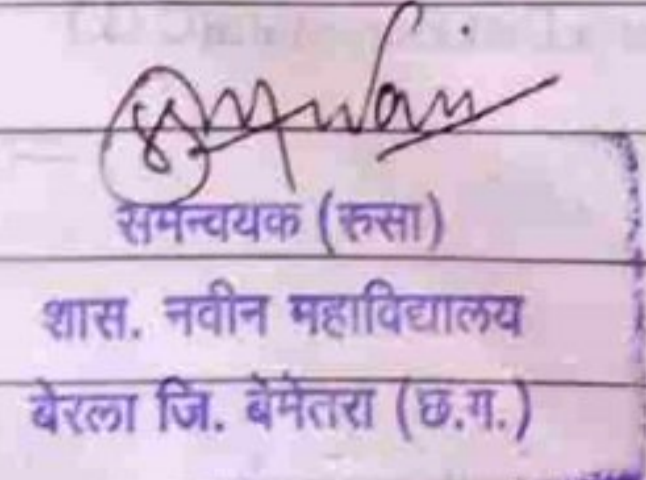 समन्वयक (रुसा)
शास. नवीन महाविद्यालय
बेरला जि. बेमेतरा (छ.ग.)